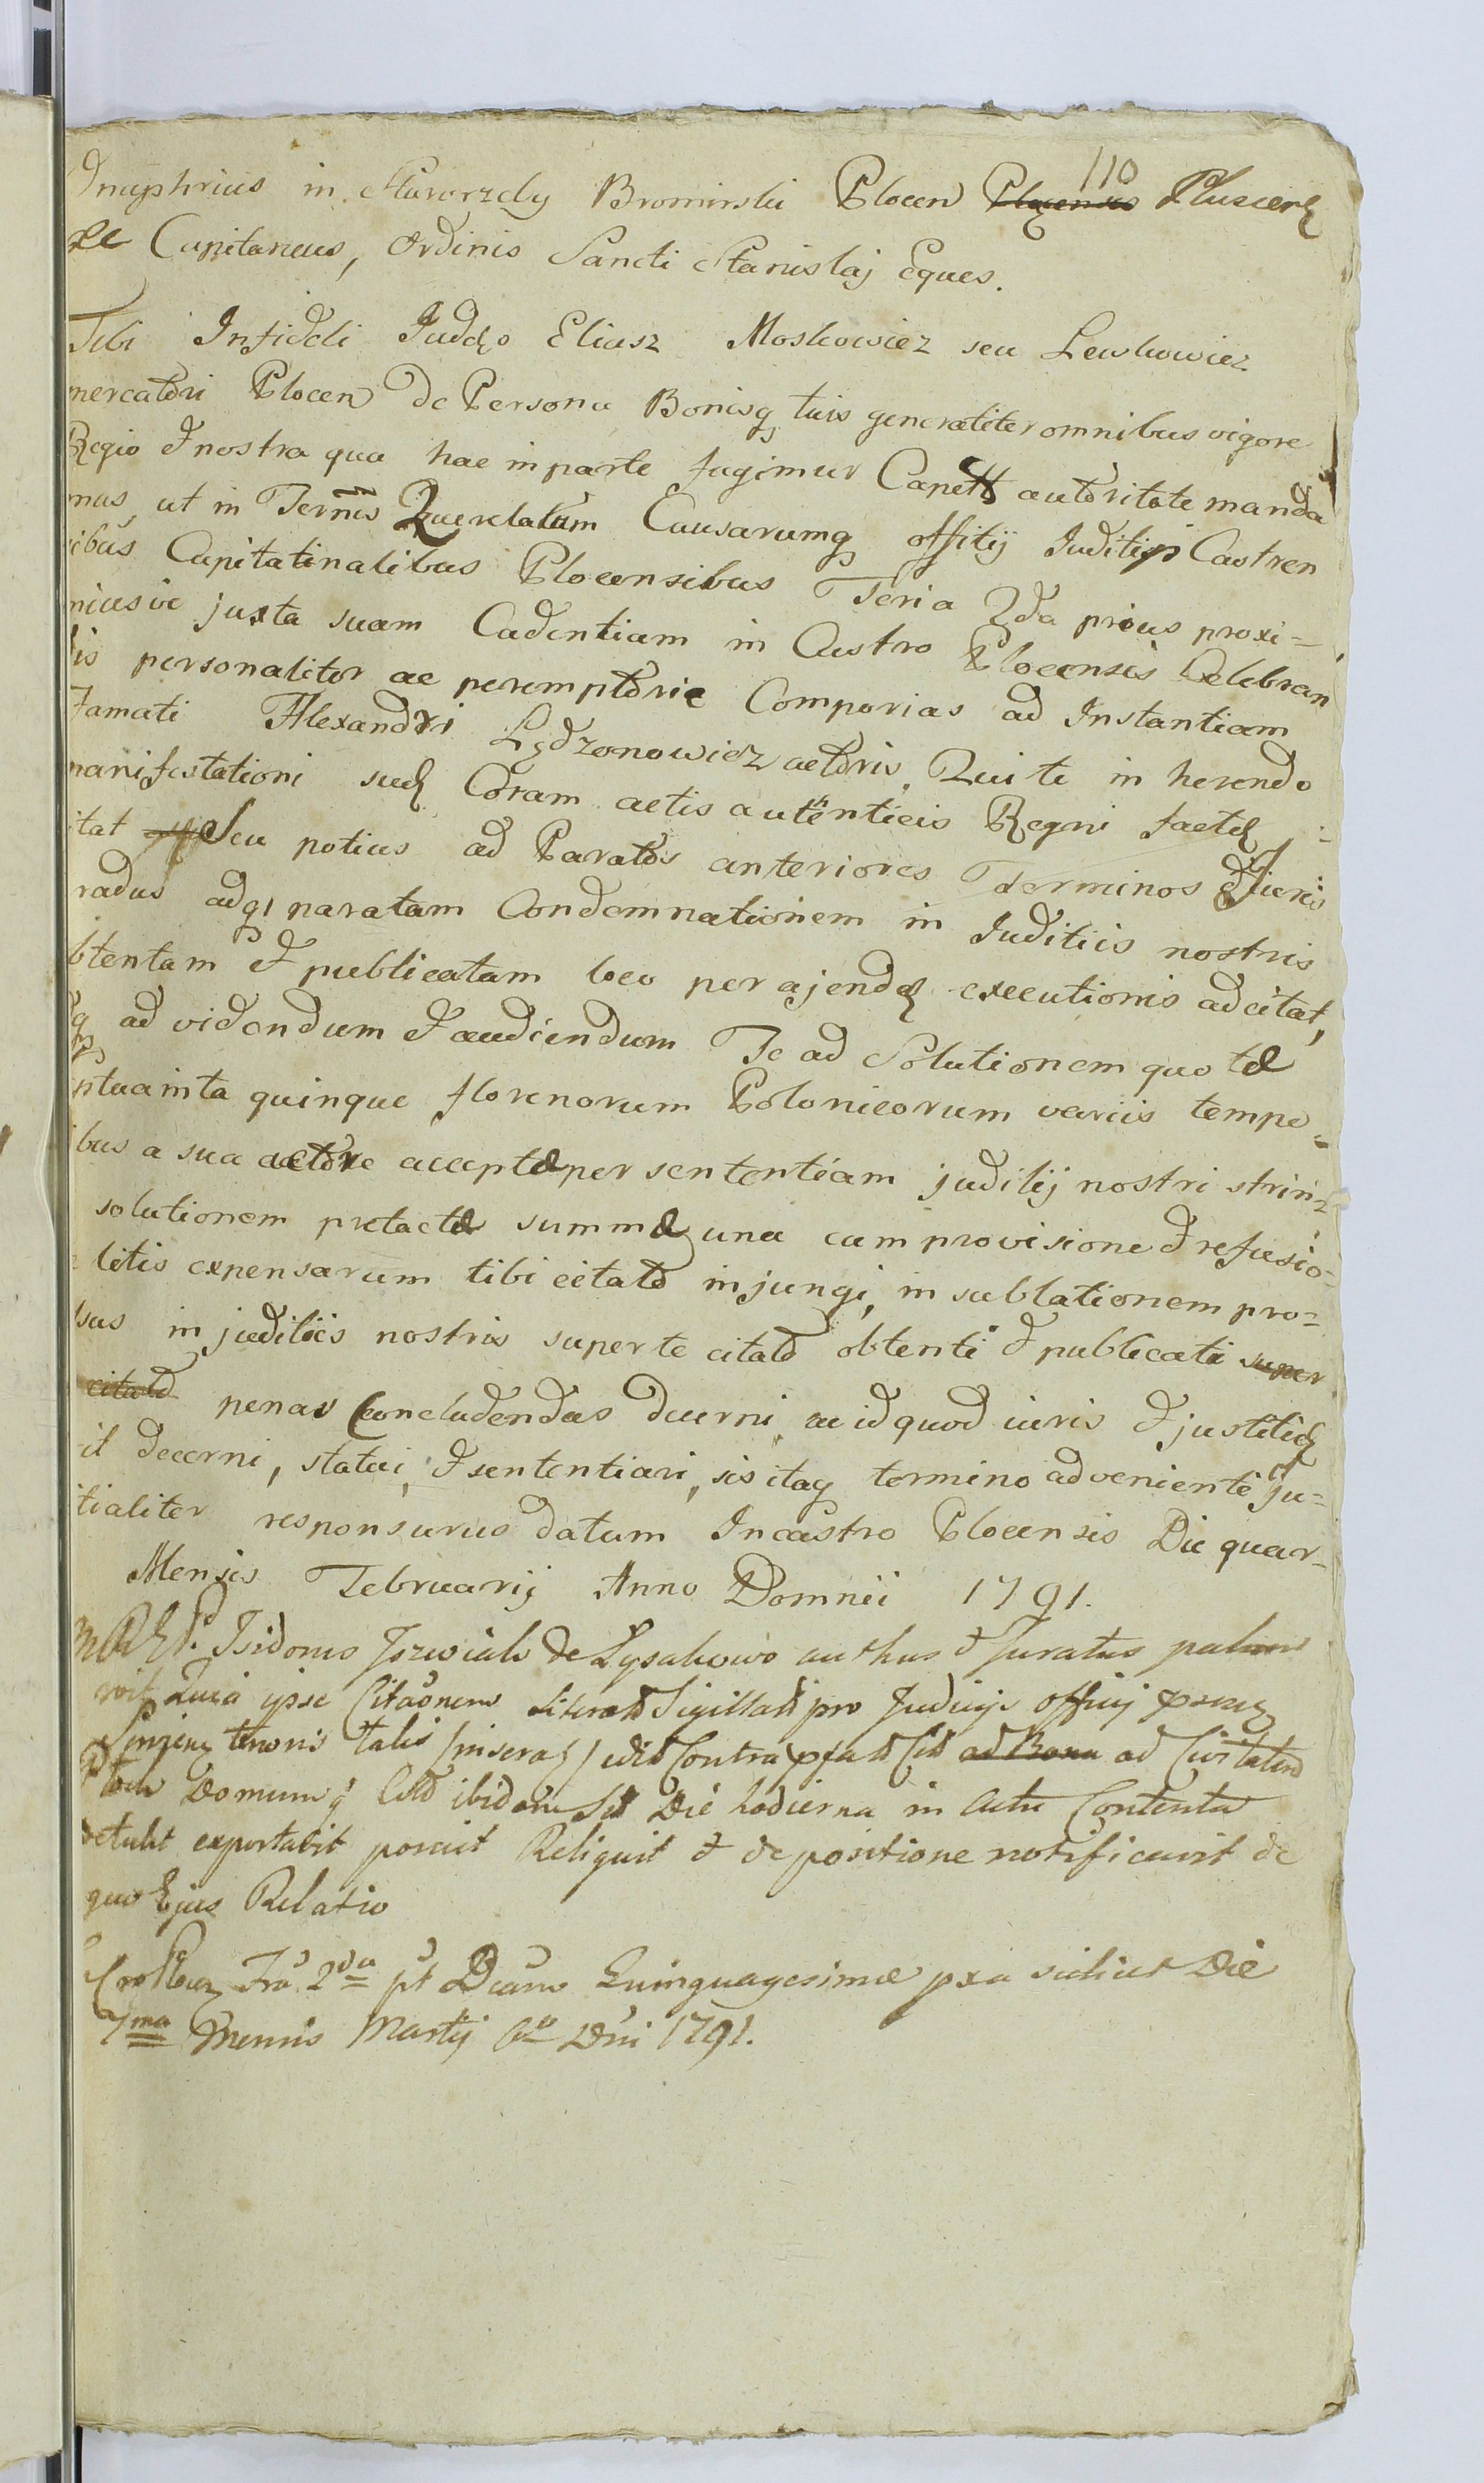 110
Onuphrius in Staorzeby Bromirski Plocen Plocensis Pluscens
xe Capitaneus, Ordinis Sancti Stanislaj Eques.
Tibi Infideli Judęo Eliasz Moskowicz seu Lewkowicz
mercatori Plocen De Persona Bonisq tuis generaliter omnibus vigore
Regio & nostra qua hac in parte fugimur Capett autoritate manda
mus, ut in Termīs Querelarum Causarumq offitij Juditijs Castren
sibus Capitatinalibus Plocensibus Feria 2da prius proxi=
nius ve juxta suam Cadentiam in Castro Plocensis Celebran
dis personaliter ac peremptorie Comporias ad Instantiam
Famati Alexandri Lędzonowicz actoris, Qui te in herendo
manifestationi suę Coram actis autenticis Regni factę
itat Seu potius ad Paratos anteriores Terminos & Juris
radus adq; paratam Condemnationem in Juditiis nostris
btentam & publicatam loco per ajendę executionis adcitat,
q ad videndum & audiendum Te ad Solutionem quotæ
ntuainta quinque florenorum Polonicorum variis tempo=
ibus a sua actore acceptæ per sententiam juditij nostri strin=
solutionem pretactæ summæ una cum provisione & refusio=
litis expensarum tibi citato injungi, in sublationem pro=
sus in juditiis nostris super te citato obtenti & publicati super
citato penas Concludendas Decerni ac id quod iuris & justitię
it decerni, statui, & sententiari, sis itaq termino adveniente ju=
itialiter responsurus datum In castro Plocensis Die quar=
Mensis Februarij Anno Domnii 1791.
Isidorus Jozwiak de Lysakowo authus & Juratus palam
vit Quia ipse Citaonem Literatt Sigillatt pro Judicijs offcij
tenoris talis (inserat) Contra ad Bona ad Civitatem
Plocen Domumq ibidem Die hodierna in Actu Contenta
detulit exportavit posuit Reliquit & de positione notificavit de
quo Ejus Relatio
Fra 2da pt Dcam Quinquagesimæ pxa scilicet Die
7ma Mensis Martij Ao Dni 1791.